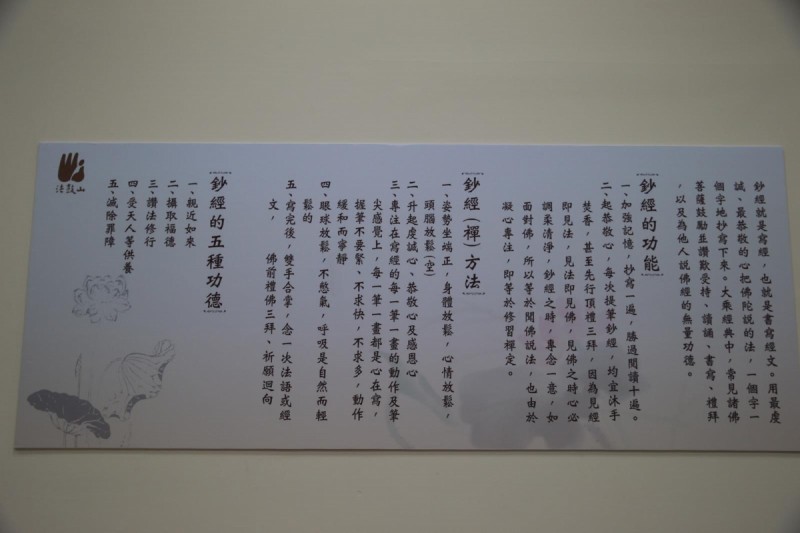 鈔經就是寫經，也就是書寫經文。用最虔
誠、最恭敬的心把佛陀說的法，一個字一
個字地抄寫下來。大乘經典中，常見諸佛
菩薩鼓勵並讚歎受持、讀誦、書寫、禮拜
，以及為他人說佛經的無量功德。
鈔經的功能
一、加強記憶，抄寫一遍，勝過閱讀十遍。
二、起恭敬心，每次提筆鈔經，均宜沐手
焚香，甚至先行頂禮三拜，因為見經
即見法，見法即見佛，見佛之時心必
調柔清淨，鈔經之時，專念一意，如
面對佛，所以等於聞佛說法，也由於
凝心專注，即等於修習禪定。
鈔經(禪)方法
一、姿勢坐端正，身體放鬆，心情放鬆，
頭腦放鬆(空)
二、升起虔誠心、恭敬心及感恩心
三、專注在寫經的每一筆一畫的動作及筆
尖感覺上，每一筆一畫都是心在寫，
握筆不要緊、不求快，不求多，動作
緩和而寧靜
四、眼球放鬆，不憋氣，呼吸是自然而輕
鬆的
五、寫完後，雙手合掌，念一次法語或經
文，　佛前禮佛三拜、祈願迴向
鈔經的五種功德
一、親近如來
二、攝取福德
三、讚法修行
四、受天人等供養
五、滅除罪障
法鼓山